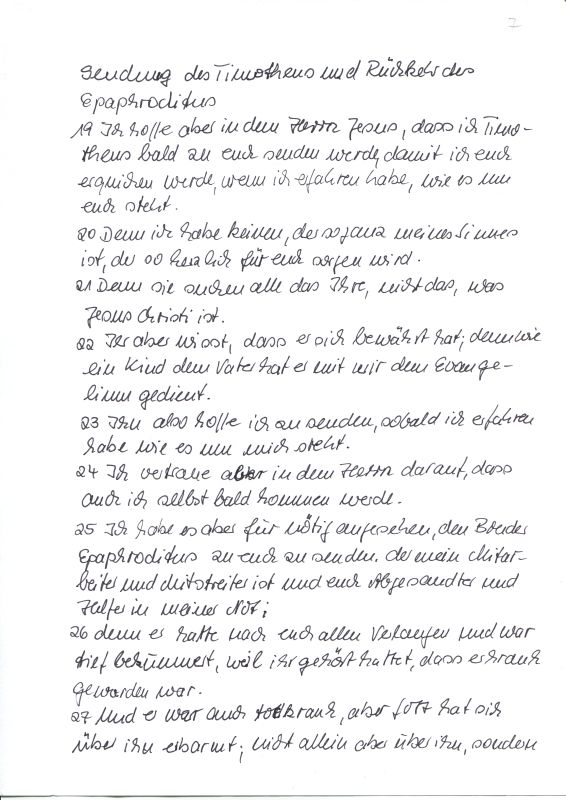 7
Sendung des Timotheus und Rückkehr des
Epaphroditus
19 Ich hoffe aber in dem Herrn Jesus, dass ich Timo-
theus bald zu euch senden werde, damit ich auch
erquicken werde, wenn ich erfahren habe, wie es um
euch steht.
20 Denn ich habe keinen, der so ganz meines Sinnes
ist, der so herzlich für euch sorgen wird.
21 Denn sie suchen alle das Ihre, nicht das, was
Jesus Christi ist.
22 Ihr aber wisst, dass er sich bewährt hat; denn wie
ein Kind dem Vater hat er mit mir dem Evange-
lium gedient.
23 Ihn also hoffe ich zu senden, sobald ich erfahren
habe wie es um mich steht.
24 Ich vertraue aber in dem Herrn darauf, dass
auch ich selbst bald kommen werde.
25 Ich habe es aber für nötig angesehen, den Bruder
Epaphroditus zu euch zu senden. der mein Mitar-
beiter und Mitstreiter ist und euch Abgesandter und
Helfer in meiner Not;
26 denn er hatte nach euch allen Verlangen und war
tief bekümmert, weil ihr gehört hattet, dass er krank
geworden war.
27 Und er war auch todkrank, aber Gott hat sich
über ihn erbarmt; nicht allein aber über ihn, sondern